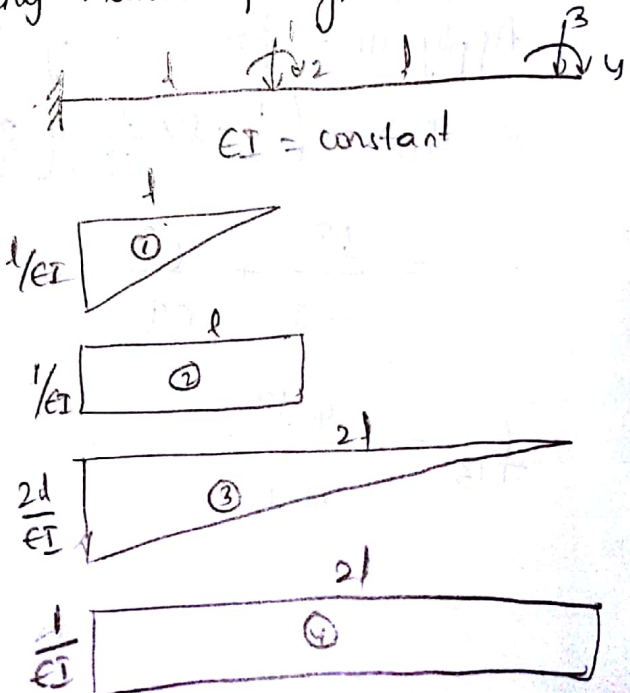 l 1 2 l 3 4
EI = constant
l
l/EI ①
l
1/EI ②
2l
2l/EI ③
2l
1/EI ④